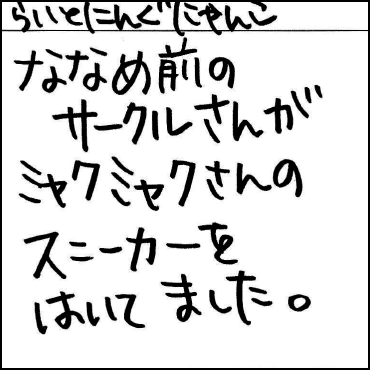 らいとにんぐにゃんこ
ななめ前の
サークルさんが
ミャクミャクさんの
スニーカーを
はいてました。